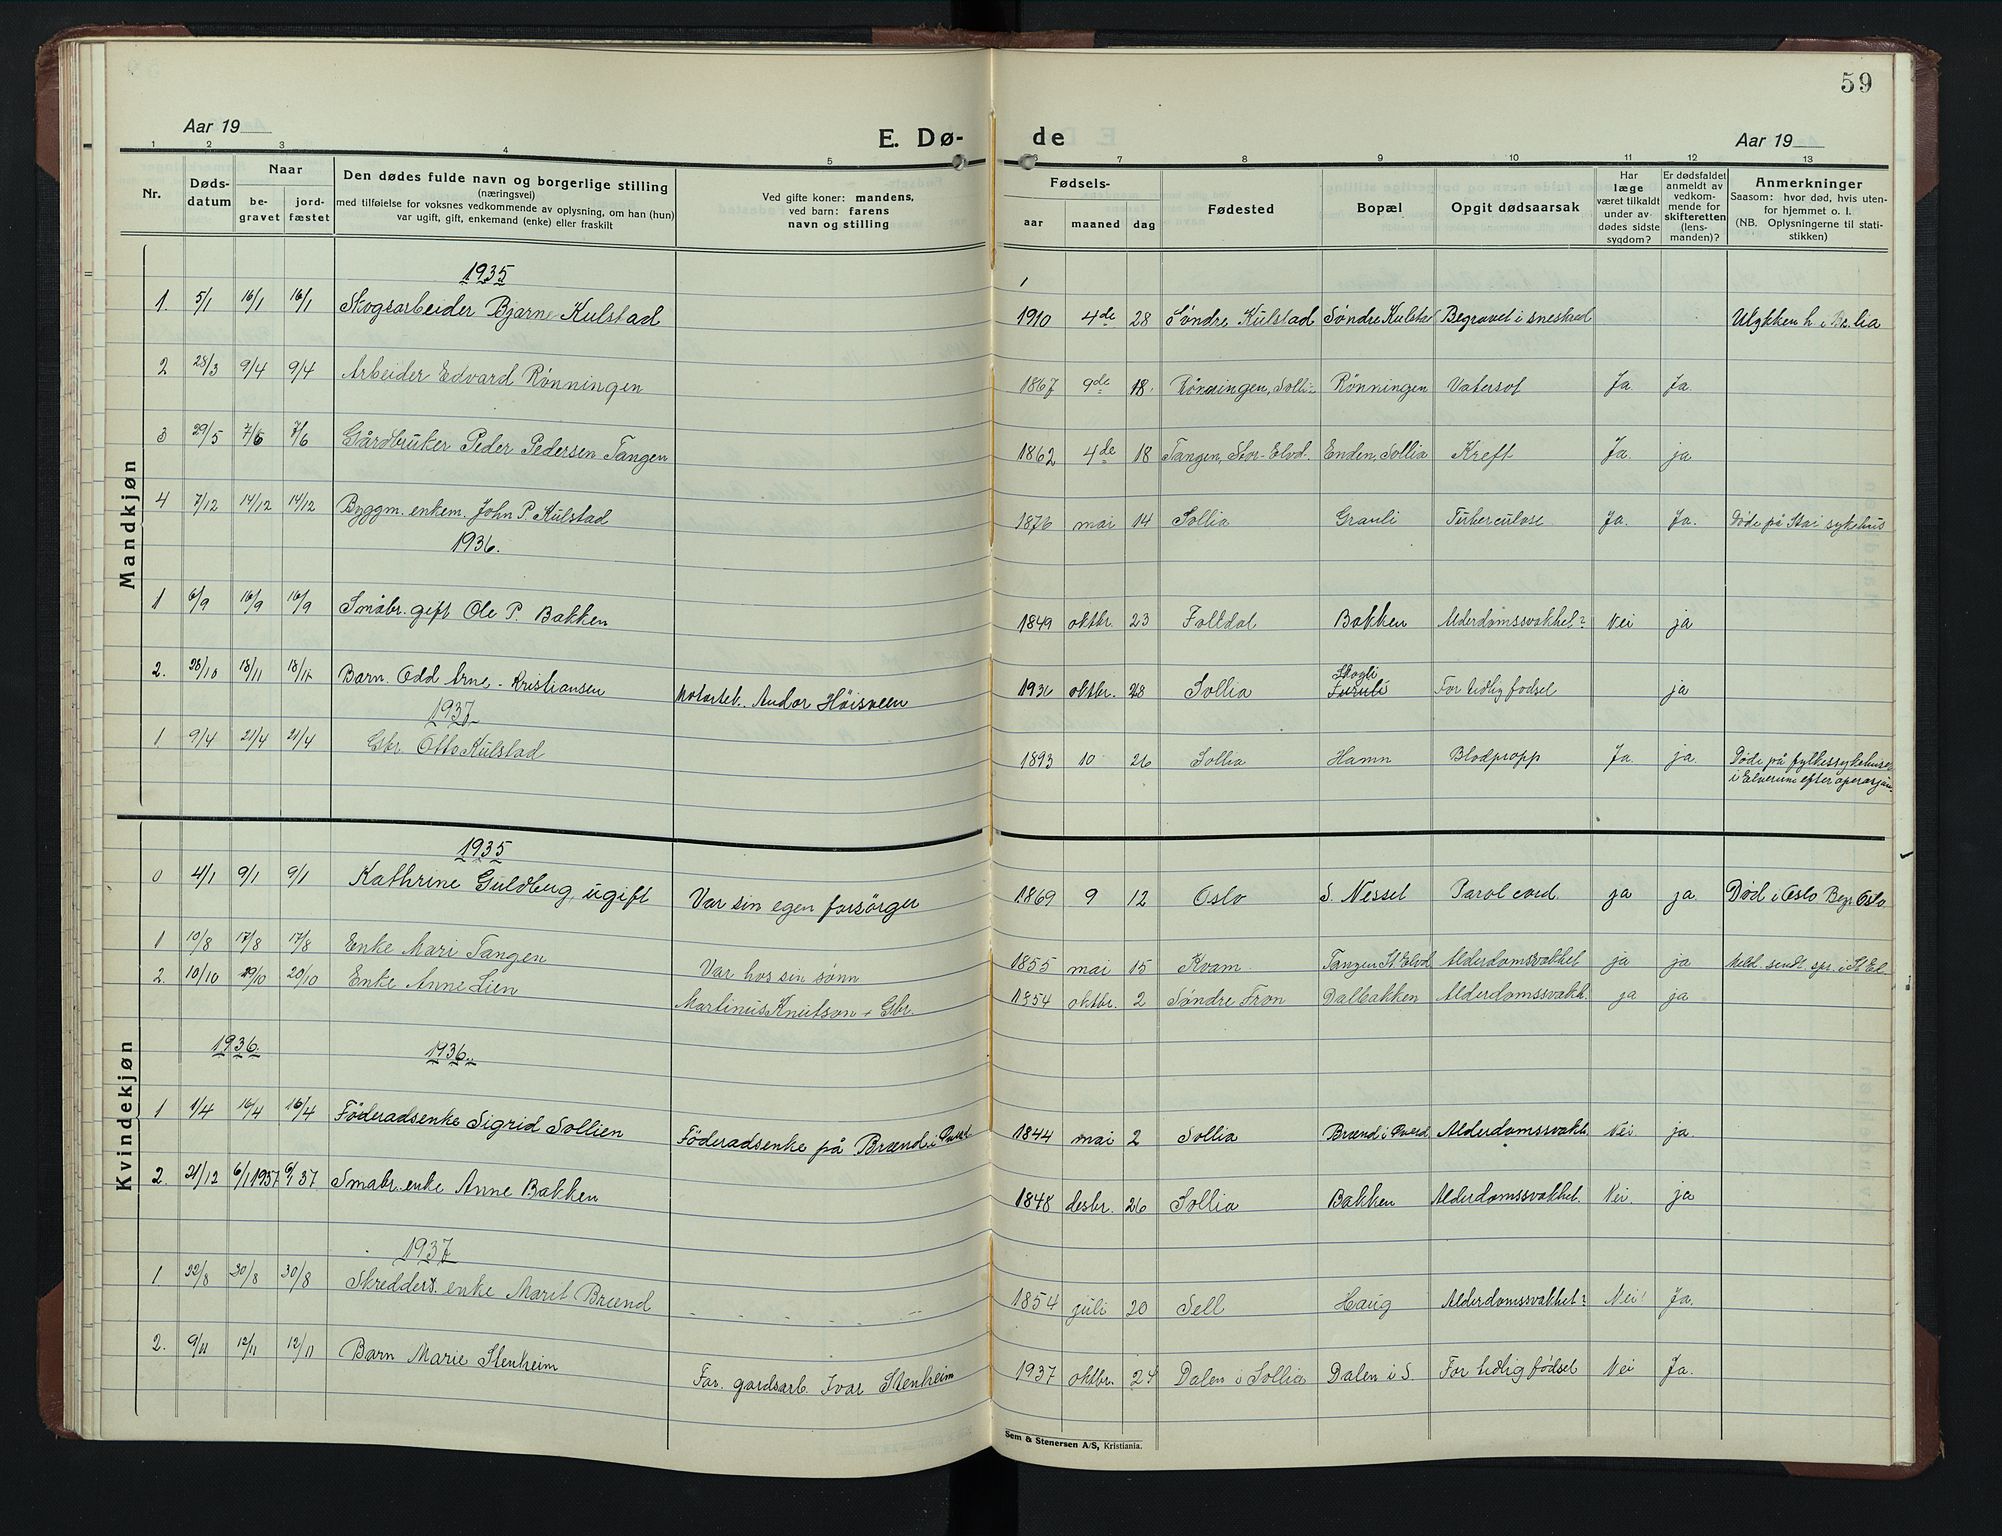 59
Aar 19
E. Dø-
de
Aar 19
1 2 3 4 5 6 7 8 9 10 11 12 13
Nr.
Døds-
datum
Naar
be-
gravet
jord-
fæstet
Den dødes fulde navn og borgerlige stilling
(næringsvei)
med tilføielse for voksnes vedkommende av oplysning, om han (hun)
var ugift, gift, enkemand (enke) eller fraskilt
Ved gifte koner: mandens,
ved barn: farens
navn og stilling
Fødsels-
aar maaned dag
Fødested
Bopæl
Opgit dødsaarsak
Har
læge
været tilkaldt
under av-
dødes sidste
sygdom?
Er dødsfaldet
anmeldt av
vedkom-
mende for
skifteretten
(lens-
manden)?
Anmerkninger
Saasom: hvor død, hvis uten-
for hjemmet o. l.
(NB. Oplysningerne til stati-
stikken)
Mandkjøn
1935
1. 5/1 16/1 16/1 Skogsarbeider Bjarne Kulstad 1910 4de 28 Søndre Kulstad Søndre Kulstad Begravet i sneskred Ulykken h. i Br. lia
2 28/3 9/4 9/4 Arbeider Edvard Rønningen 1867 9de 18. Rønningen, Solli- Rønningen Vatersot Ja. Ja.
3 29/5 7/6 7/6 Gårdbruker Peder Pedersen Tangen 1862 4de 18 Tangen, Stor-Elvd. Enden, Sollia Kreft Ja. ja
4 7/12 14/12 14/12 Byggm. enkem. John P. Kulstad 1876 mai 14 Sollia Grauli Tuberculose. Ja. Ja. Døde på Stai sykehus
1936.
1 6/9 16/9 16/9 Småbr. gift Ole P. Bakken 1849 oktbr. 23 Folldal Bakken Alderdomssvakhet? Nei ja
2. 28/10 18/11 18/11 Barn. Odd Arne - Kristiansen Andor Høisveen 1936 oktbr. 28 Sollia Skogli Furuli For tidlig fødsel ja
1937
1 9/4 21/4 21/4 Gbr. Otto Kulstad 1893 10 26 Sollia Hamn Blodpropp Ja. ja. Døde på fylkessykehuset
i Elverum efter operasjon.
Kvindekjøn
1935
0 4/1 9/1 9/1 Kathrine Guldberg, ugift Var sin egen forsørger 1869 9 12 Oslo S. Nesset ja ja. Død i Oslo Begr. Oslo
1 10/8 17/8 17/8 Enke Mari Tangen Var hos sin sønn 1855 mai 15 Kvam Tangen St. Elvd. Alderdomssvakhet ja ja Meld. sendt spr. i St. El.
2 10/10 29/10 20/10 Enke Anne Lien Martinus Knutson + Gbr. 1854 oktbr. 2 Søndre Fron Dalbakken Alderdomssvakh. ja ja
1936. 1936.
1 1/4 16/4 16/4 Föderadsenke Sigrid Sollien Föderadsenke på Brænd i 1844 mai 2 Sollia Brænd i Alderdomssvakh. Nei ja.
2. 21/12 6/1 1937 6/1 37 Smabr. enke Anne Bakken 1848 desbr. 26 Sollia Bakken Alderdomssvakhet. Nei ja
1937
1 22/8 30/8 30/8 Skredders. enke Marit Brænd - - - - - 1854 juli 20 Sell Haug Alderdomssvakhet? Nei! Ja.
2. 9/11 12/11 12/11 Barn Marie Stenheim Far. gardsarb. Ivar Stenheim 1937 oktbr. 24 Dalen i Sollia Dalen i S. For tidlig fødsel Nei Ja.
Sem & Stenersen A/S, Kristiania.